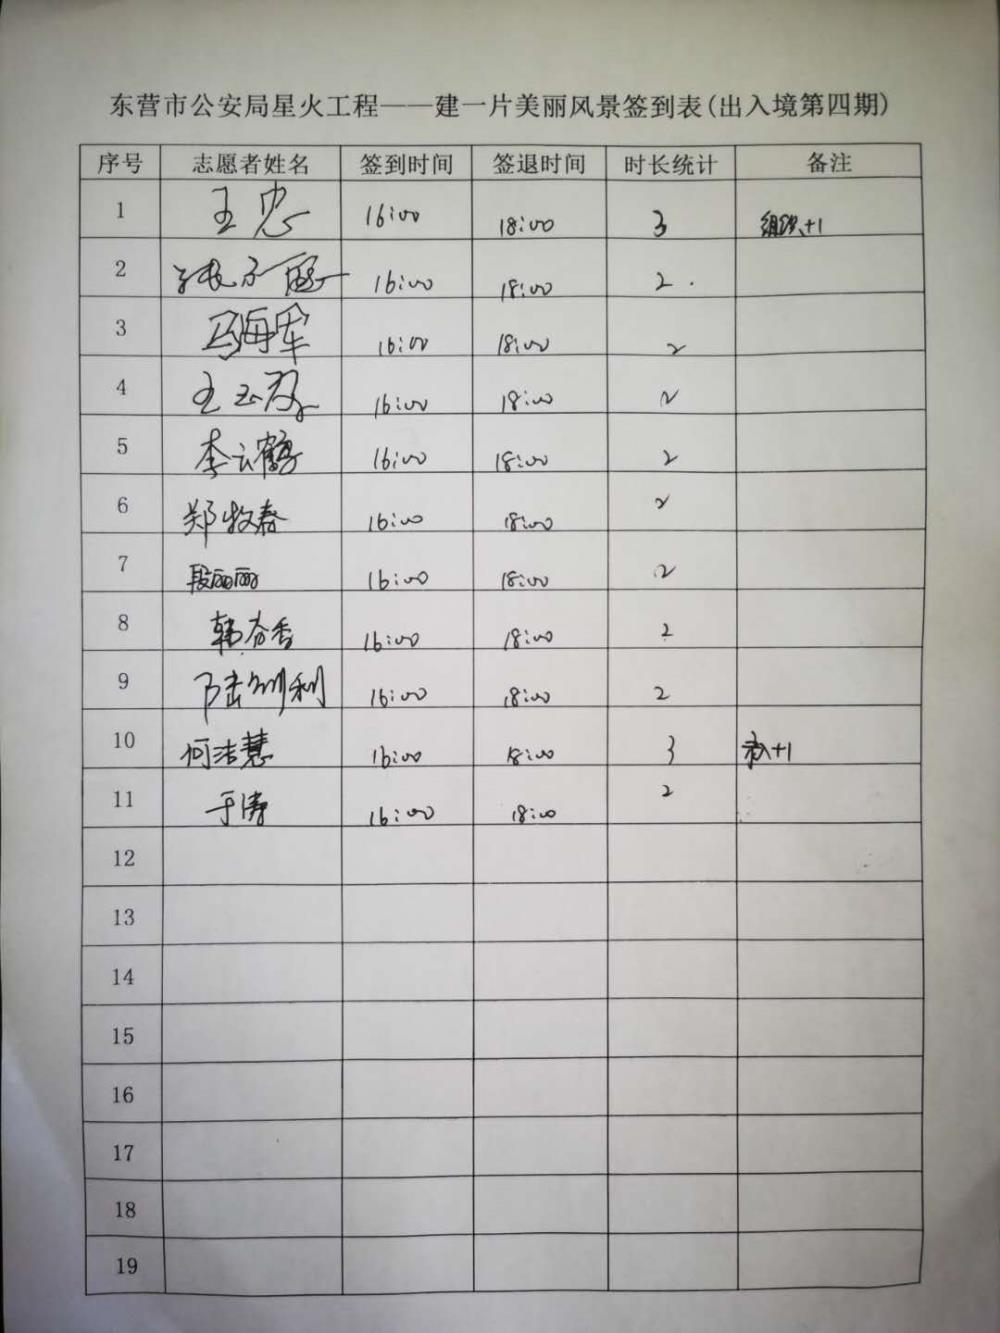 东营市公安局星火工程——建一片美丽风景签到表(出入境第四期)
序号 志愿者姓名 签到时间 签退时间 时长统计 备注
1 王忠 16:00 18:00 3 组织+1
2 16:00 18:00 2
3 马海军 16:00 18:00 2
4 王 16:00 18:00 2
5 李云鹤 16:00 18:00 2
6 郑牧春 16:00 18:00 2
7 段丽丽 16:00 18:00 2
8 韩芬香 16:00 18:00 2
9 陆 利 16:00 18:00 2
10 何洁慧 16:00 18:00 3 +1
11 于涛 16:00 18:00 2
12
13
14
15
16
17
18
19